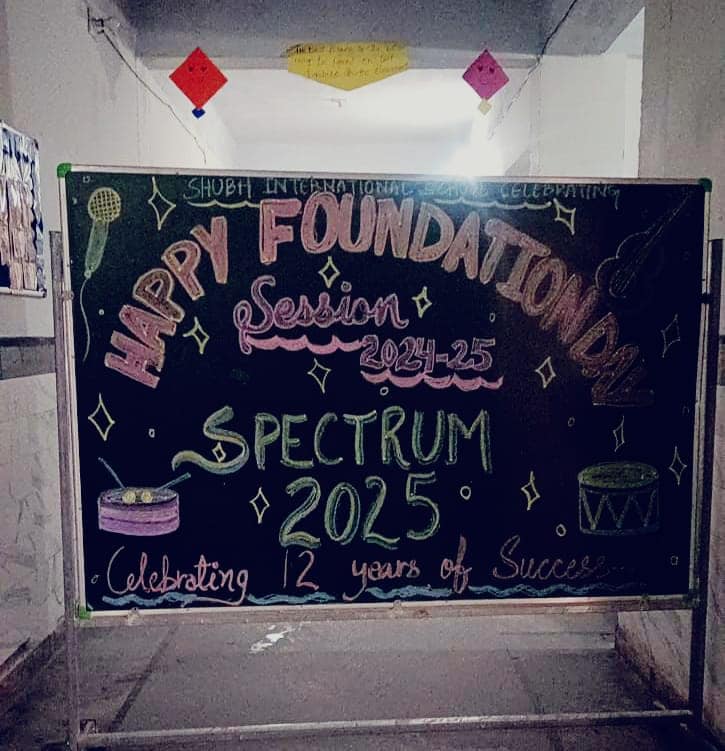 SHUBH INTERNATIONAL SCHOOL CELEBRATING
HAPPY FOUNDATION DAY
Session
2024-25
SPECTRUM
2025
Celebrating 12 years of Success